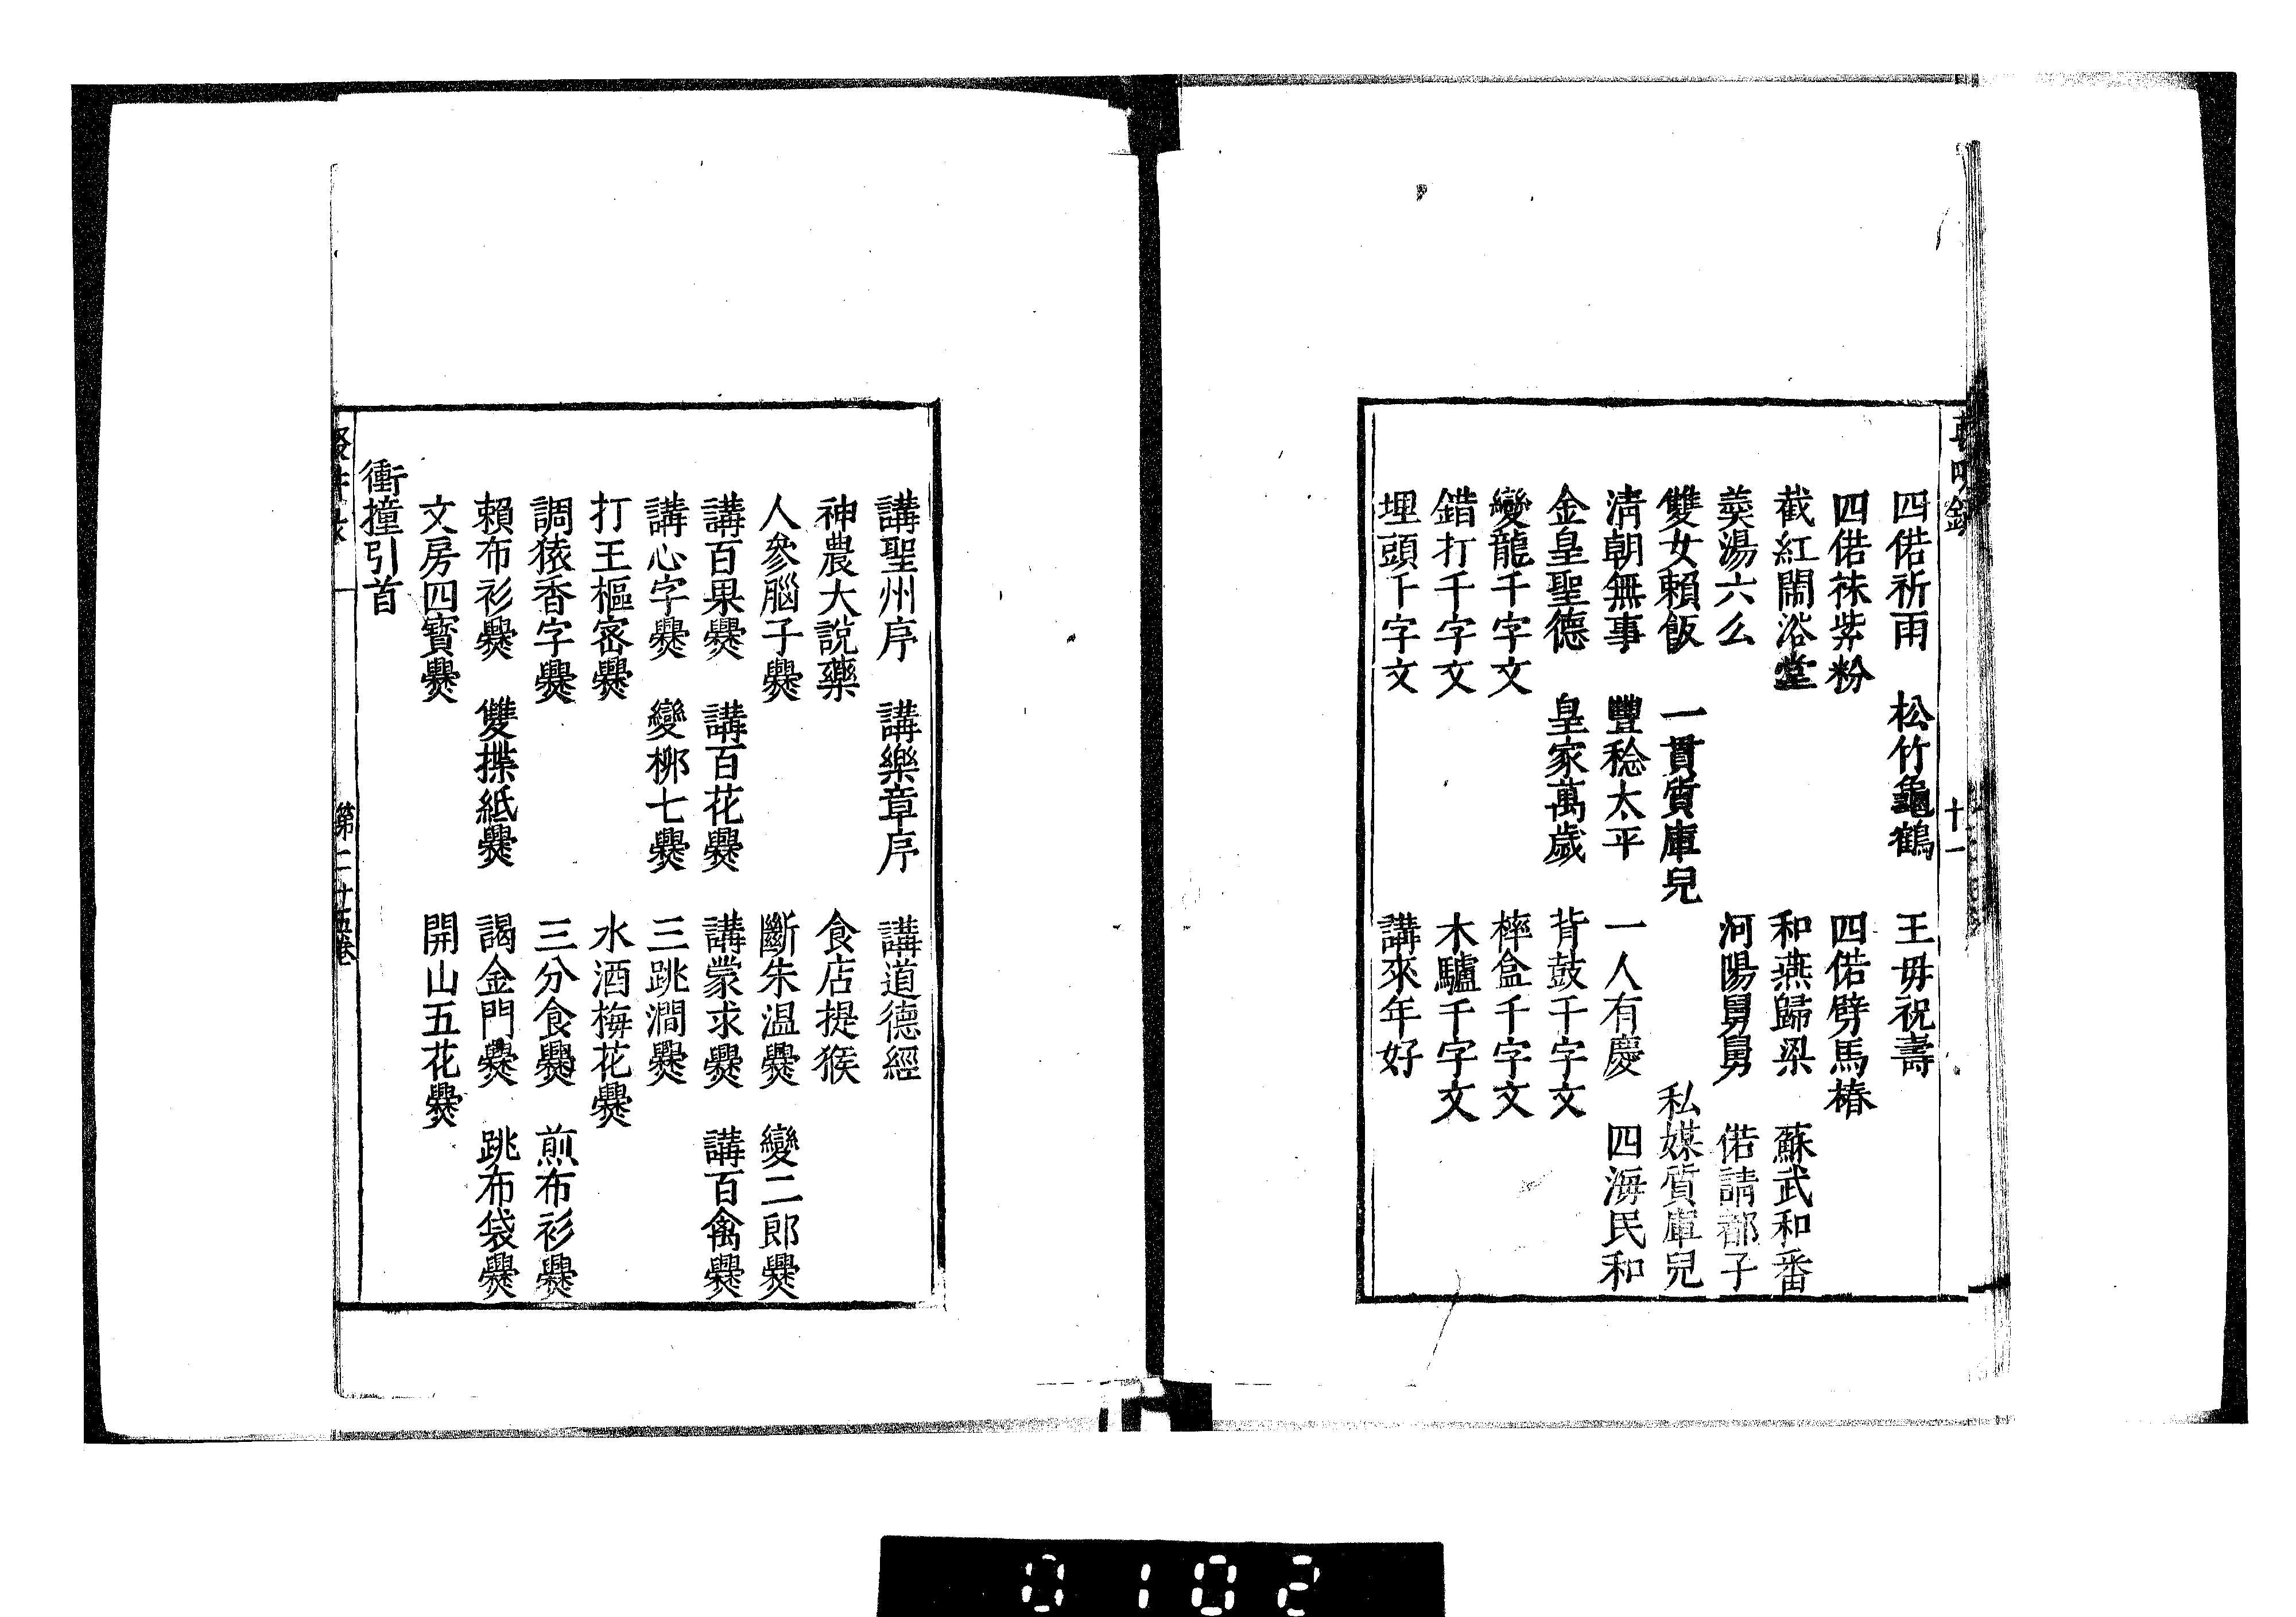 十一
四偌祈雨　松竹龜鶴　王母祝壽
四偌抹紫粉　四偌劈馬樁
截紅鬧浴堂　和燕歸梁　蘇武和番
羹湯六么　河陽舅舅　偌請都子
雙女賴飯　一貫質庫兒　私媒質庫兒
清朝無事　豐稔太平　一人有慶　四海民和
金皇聖德　皇家萬歲　背鼓千字文
變龍千字文　摔盒千字文
錯打千字文　木驢千字文
埋頭千字文　講來年好
講聖州序　講樂章序　講道德經
神農大說藥　食店提猴
人參腦子爨　斷朱温爨　變二郎爨
講百果爨　講百花爨　講蒙求爨　講百禽爨
講心字爨　變柳七爨　三跳澗爨
打王樞密爨　水酒梅花爨
調猿香字爨　三分食爨　煎布衫爨
賴布衫爨　雙揲紙爨　謁金門爨　跳布袋爨
文房四寳爨　開山五花爨
衝撞引首
第二十五卷
0102